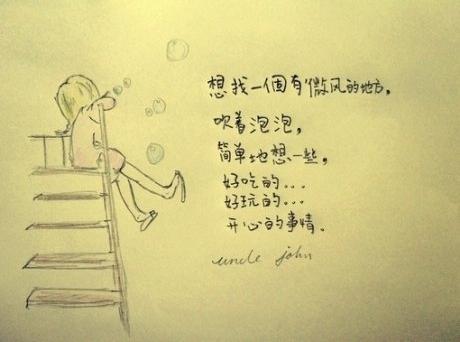 想找一個有微风的地方，
吹着泡泡，
简单地想一些，
好吃的...
好玩的...
开心的事情。
uncle john